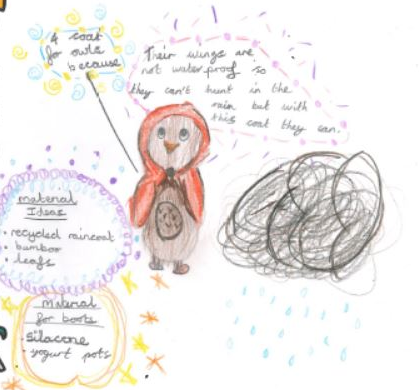 A coat
for owls
because
Their wings are
not waterproof so
they can't hunt in the
rain but with
this coat they can.
material
Ideas
• recycled raincoat
• bamboo
• leafs
material
for boots
• silacone
• yogurt pots